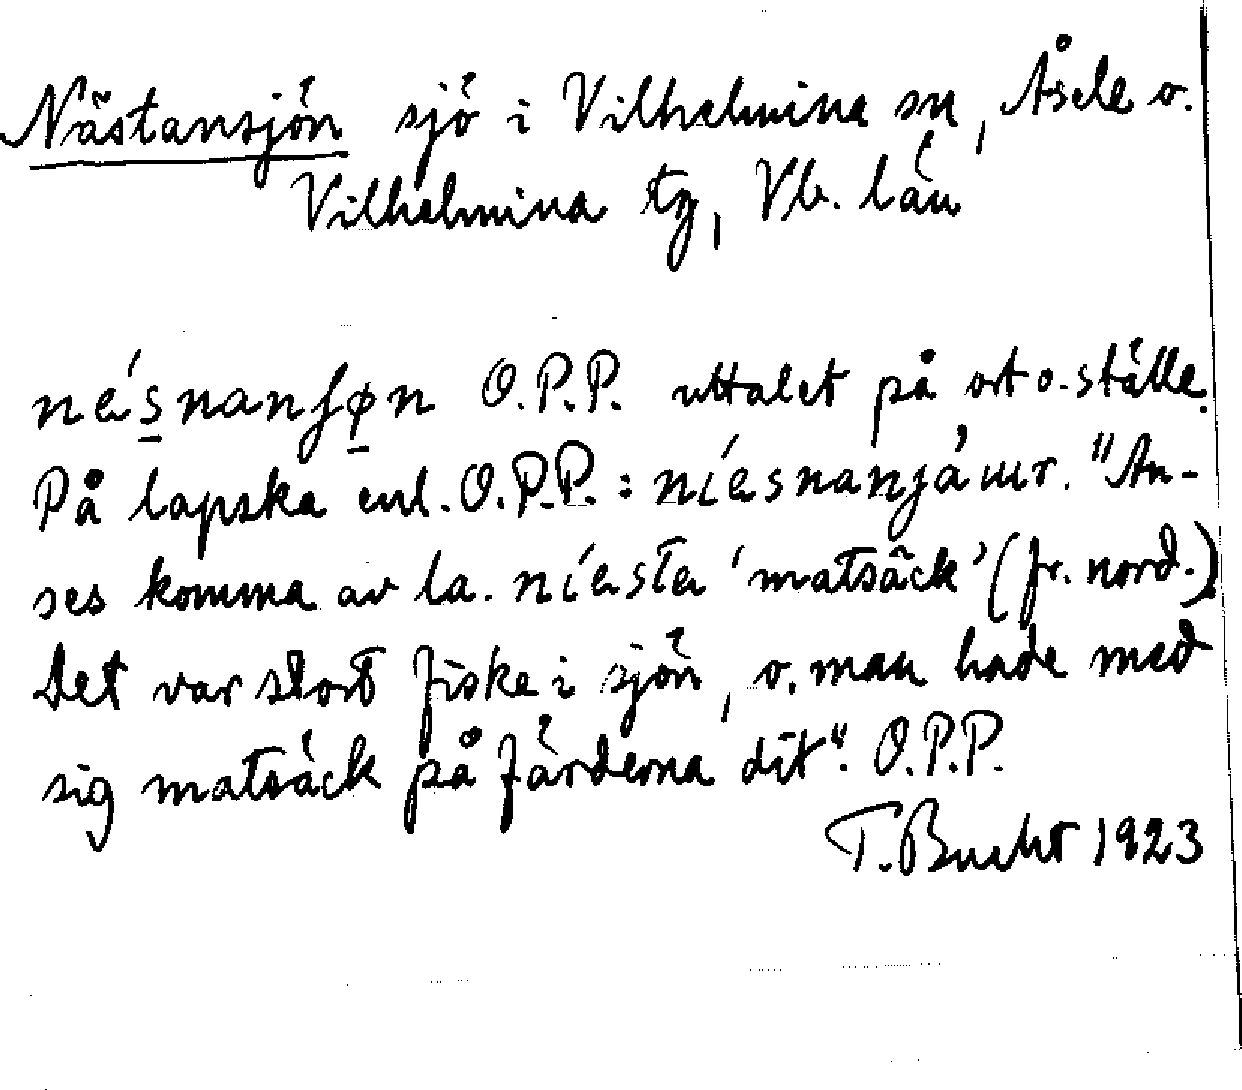 Nästansjön sjö i Vilhelmina sn, Åsele o.
Vilhelmina tg, Vb. län
né̀snanʃøn O.P.P. uttalet på ort o. ställe.
På lapska enl. O.P.P.: níesnanjáuur. "An-
ses komma av la. níesta 'matsäck' (fr. nord.)
Det var stort fiske i sjön, o. man hade med
sig matsäck på färderna dit". O.P.P.
T. Bucht 1923